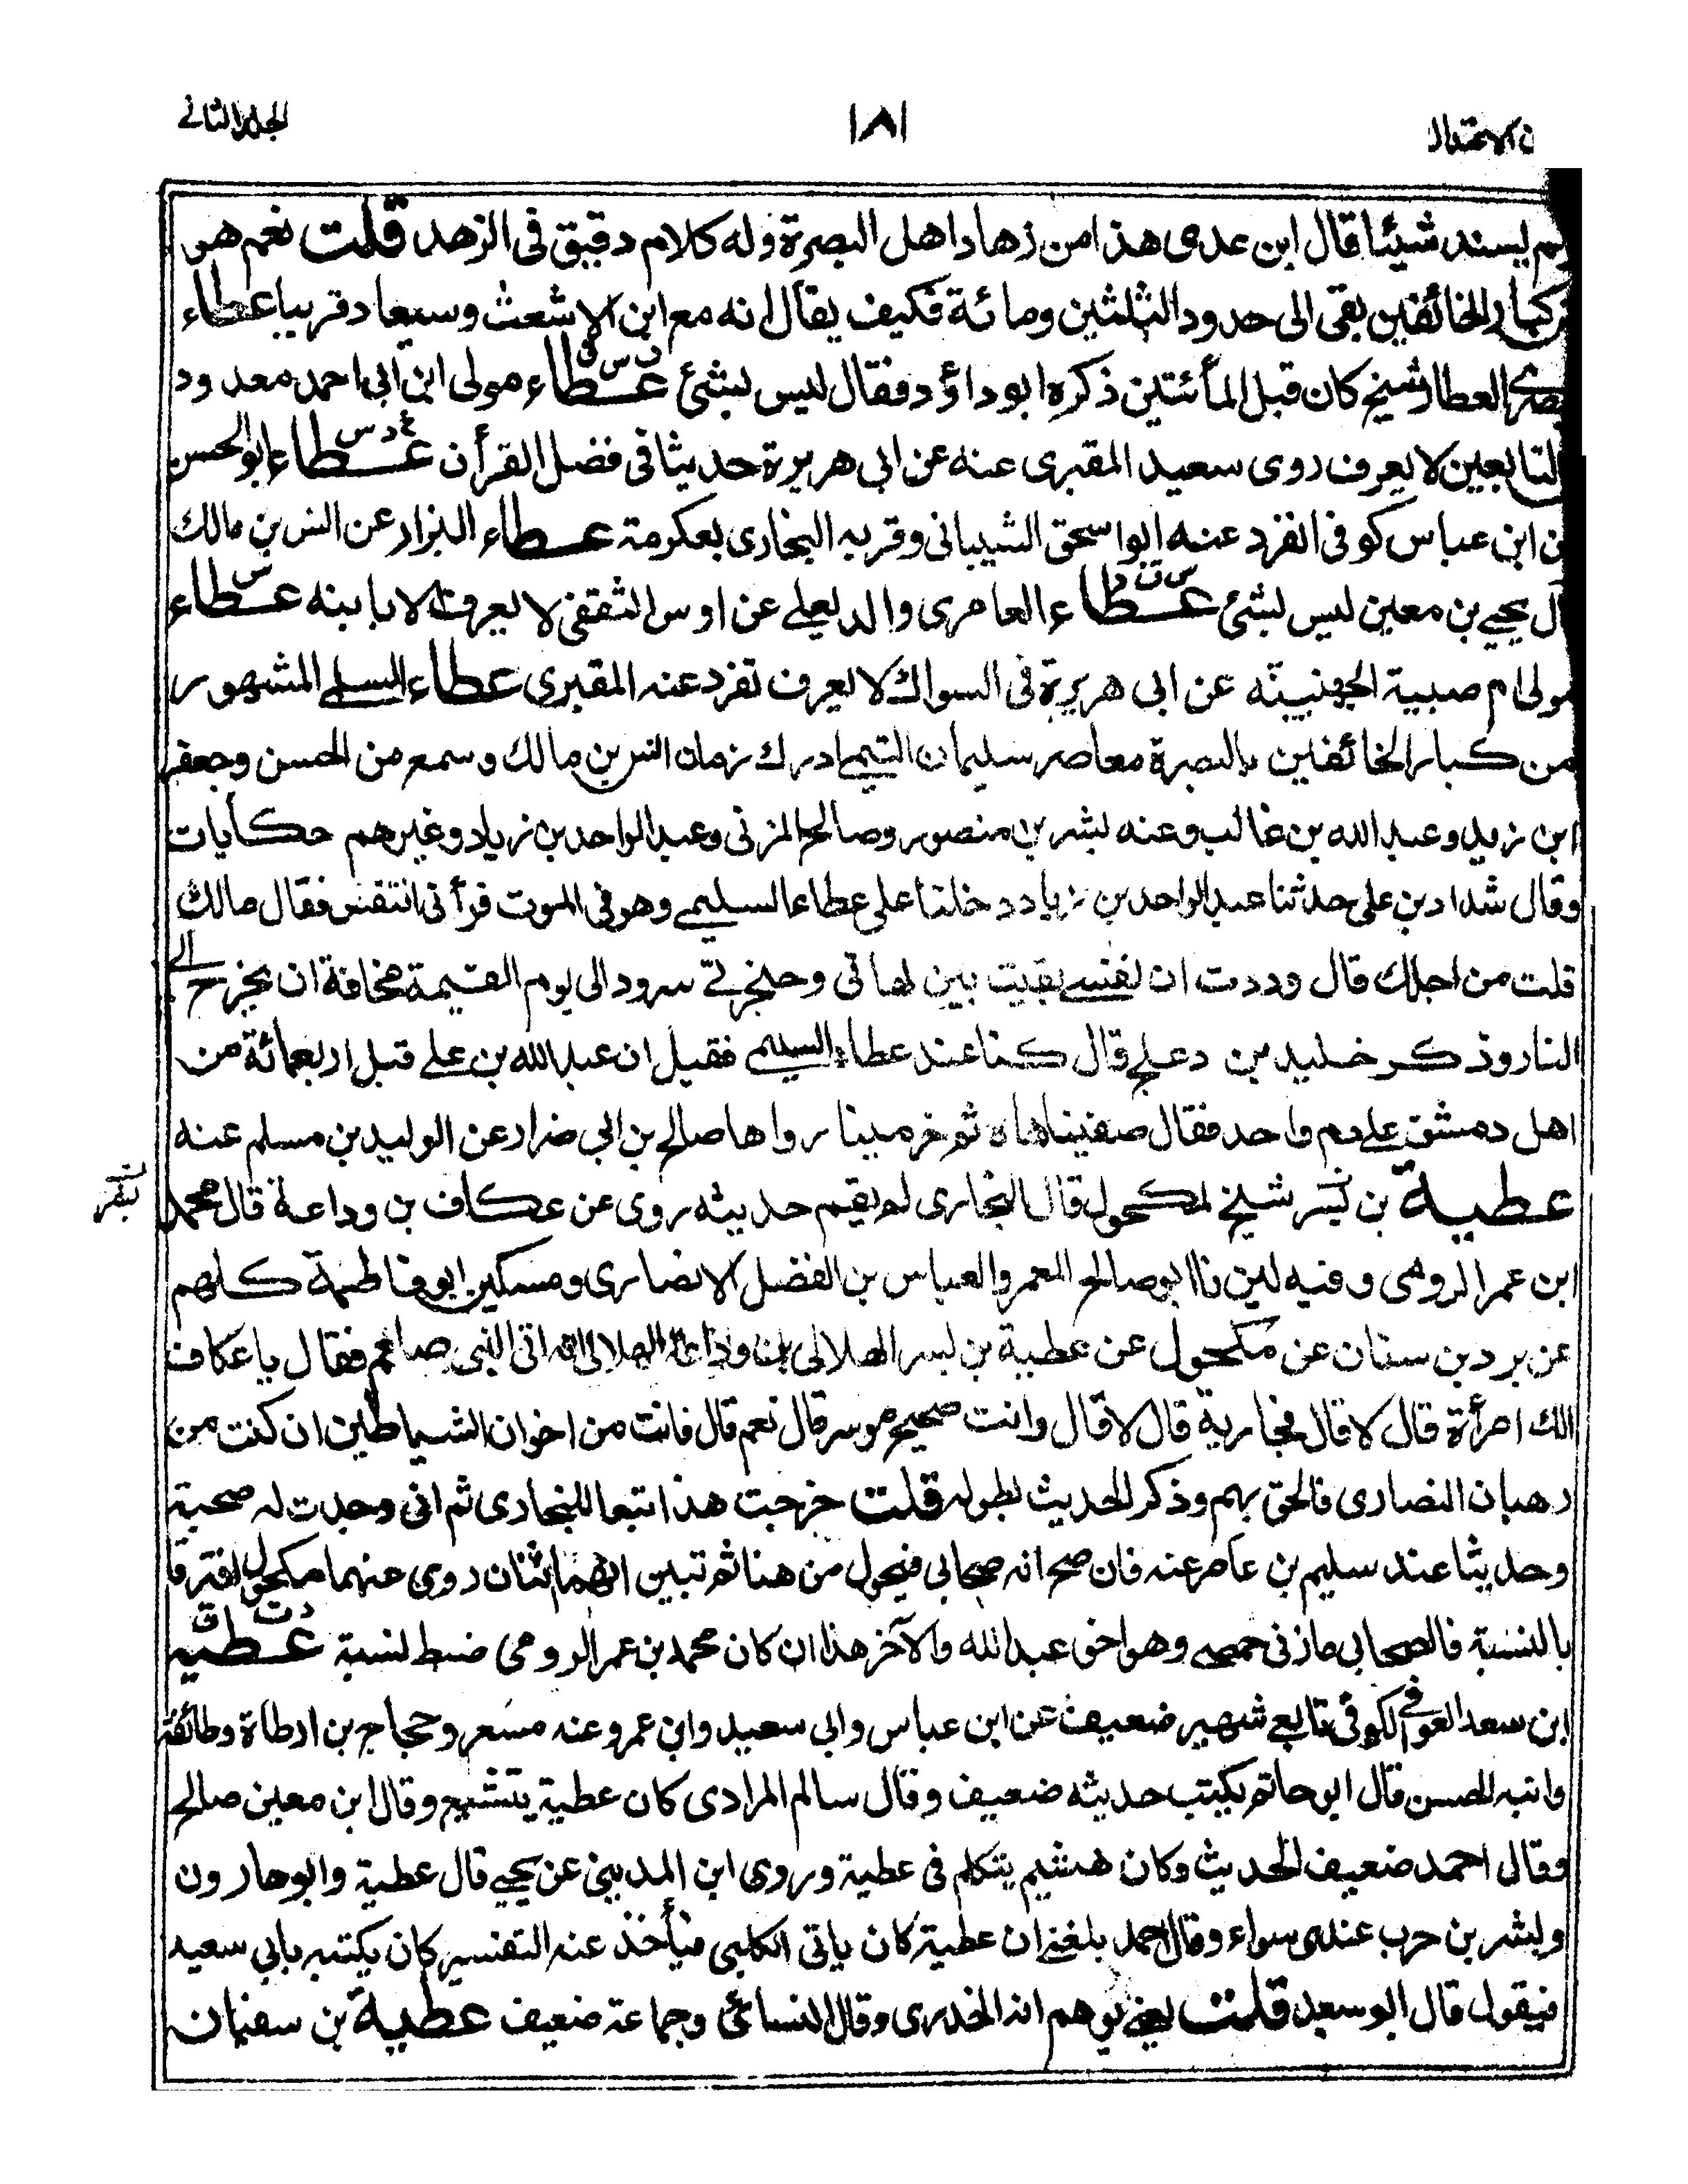 الجلد الثاني
١٨١
ن الاعتدال
لم يسند شيئا قال ابن عدى هذا من زهاد اهل البصرة وله كلام دقيق فى الزهد قلت نعم هو
كبار الخائفين بقى الى حدود الثلثين ومائة فكيف يقال انه مع ابن الاشعث وسيعاد قريبا عطاء
بصرى العطار شيخ كان قبل المأئتين ذكره ابو داؤد فقال ليس بشئ عطاء د س ق مولى ابن ابى احمد معدود
التابعين لا يعرف روى سعيد المقبرى عنه عن ابى هريرة حديثا فى فضل القرأن عطاء د س ابو الحسن
ن ابن عباس كوفى انفرد عنه ابو اسحق الشيبانى وقرنه البخارى بعكرمة عطاء البزار عن انس بن مالك
ال يحيے بن معين ليس بشئ عطاء العامرى والد يعلے عن اوس الثقفى لا يعرف الا بابنه عطاء س
مولى ام صبية الجهنيّة عن ابى هريرة فى السواك لا يعرف تفرد عنه المقبرى عطاء السلمے المشهور
من كبار الخائفين بالبصرة معاصر سليمان التيمے ادرك زمان انس بن مالك وسمع من الحسن وجعفر
ابن زيد وعبد الله بن غالب وعنه بشر بن منصور وصالح المزنى وعبد الواحد بن زياد وغيرهم حكايات
وقال شداد بن على حدثنا عبد الواحد بن زياد دخلنا على عطاء السليمے وهو فى الموت فرأنى اتنفس فقال مالك
قلت من اجلك قال وددت ان نفسے بقيت بين لهاتى وحنجرتے تردد الى يوم القيمة مخافة ان تخرج الے
النار وذكر خليد بن دعلج قال كنا عند عطاء السليمے فقيل ان عبد الله بن علے قتل اربعمائة من
اهل دمشق علے دم واحد فقال متنفسا هاه ثم خر ميتا رواها صالح بن ابى ضرار عن الوليد بن مسلم عنه
عطية بن بسر شيخ لمكحول قال البخارى لم يقم حديثه روى عن عكاف بن وداعة قال محمد
ابن عمر الرومى وفيه لين نا ابو صالح المعمر والعباس بن الفضل الانصارى ومسكين ابو فاطمة كلهم
عن برد بن سنان عن مكحول عن عطية بن بسر الهلالى بن وداعة الهلالى انه اتى النبى صلعم فقال يا عكاف
الك امرأة قال لا قال فجارية قال لا قال وانت صحيح موسر قال نعم قال فانت من اخوان الشياطين ان كنت من
رهبان النصارى فالحق بهم وذكر الحديث بطوله قلت خرجت هذا تبعا للبخارى ثم انى وجدت له صحبة
وحديثا عند سليم بن عامر عنه فان صح انه صحابى فيحول من هنا ثم تبين انهما اثنان روى عنهما مكحول افترقا
بالنسبة فالصحابى مازنى حمصے وهو اخو عبد الله والآخر هذا ان كان محمد بن عمر الرومى ضبط نسبة عطية د ت ق
ابن سعد العوفے الكوفى تابعے شهير ضعيف عن ابن عباس وابى سعيد وابن عمر وعنه مسعر وحجاج بن ارطاة وطائفة
وابنه الحسن قال ابو حاتم يكتب حديثه ضعيف وقال سالم المرادى كان عطية يتشيع وقال ابن معين صالح
وقال احمد ضعيف الحديث وكان هشيم يتكلم فى عطية وروى ابن المدينى عن يحيے قال عطية وابو هارون
وبشر بن حرب عندى سواء وقال احمد بلغنے ان عطية كان ياتى الكلبى فيأخذ عنه التفسير كان يكتبه بابى سعيد
فيقول قال ابو سعيد قلت يعنے يوهم انه الخدرى وقال النسائى وجماعة ضعيف عطية بن سفيان